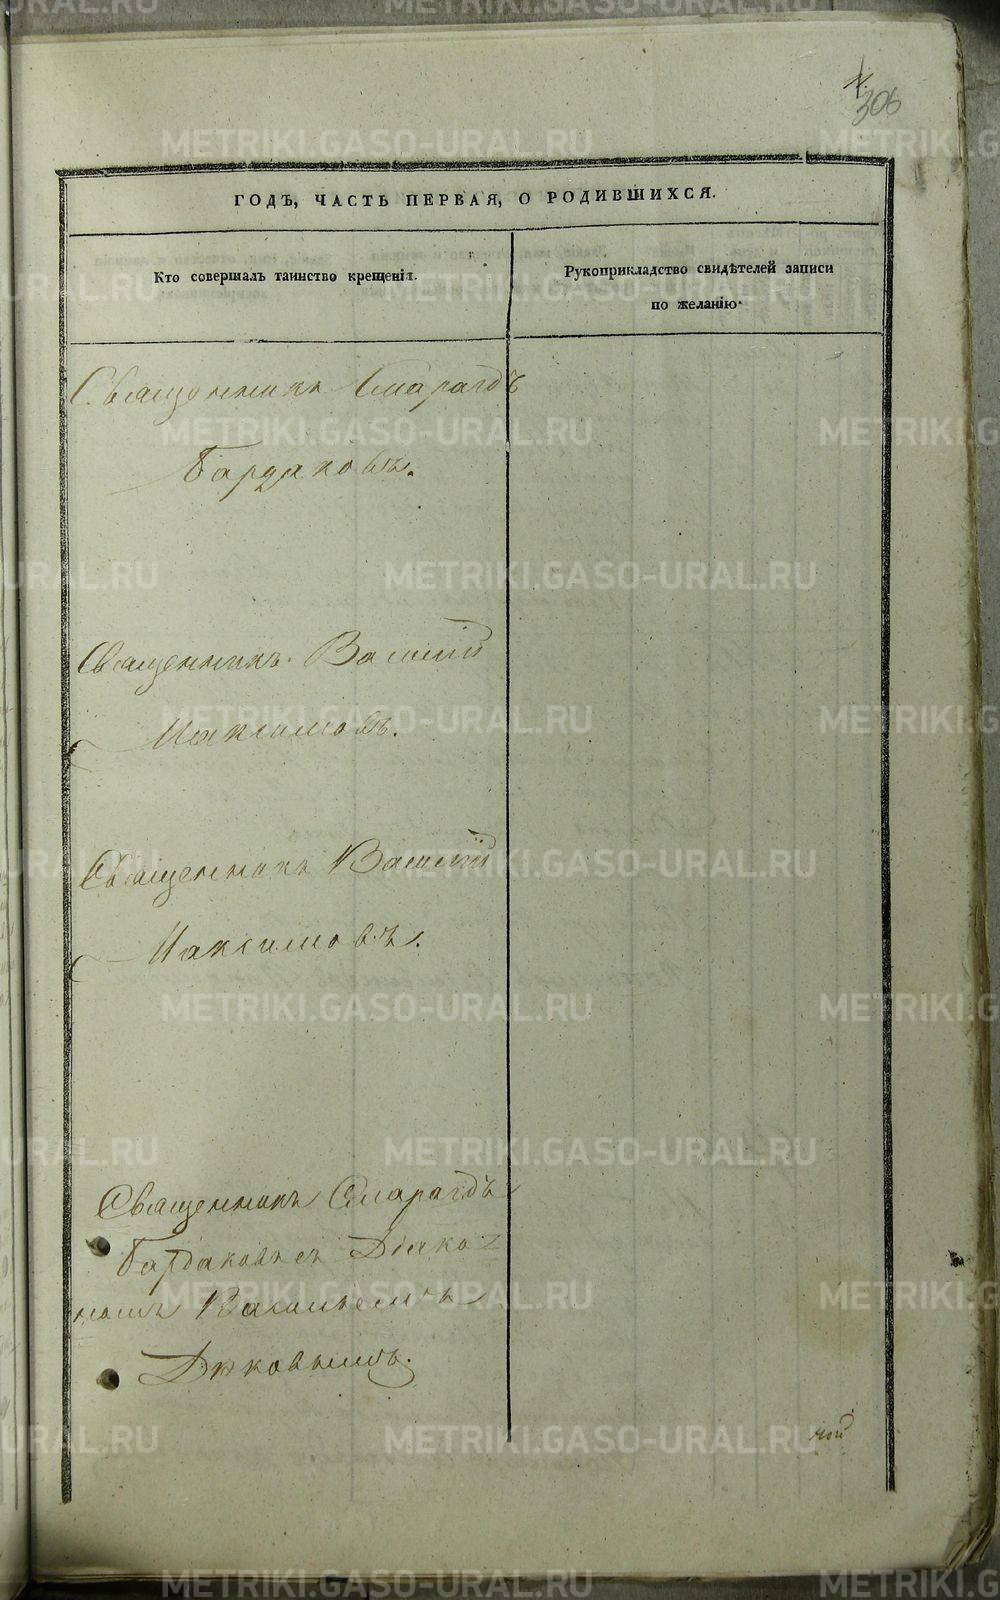 306
ГОДЪ, ЧАСТЬ ПЕРВАЯ, О РОДИВШИХСЯ.
Кто совершалъ таинство крещенія.
Рукоприкладство свидѣтелей записи
по желанію.
Священникъ Смарагдъ
Бардаковъ.
Священникъ Василій
Максимовъ.
Священникъ Василій
Максимовъ.
Священникъ Смарагдъ
Бардаковъ съ Діако-
номъ Васильемъ
Дяковымъ.
ной
METRIKI.GASO-URAL.RU